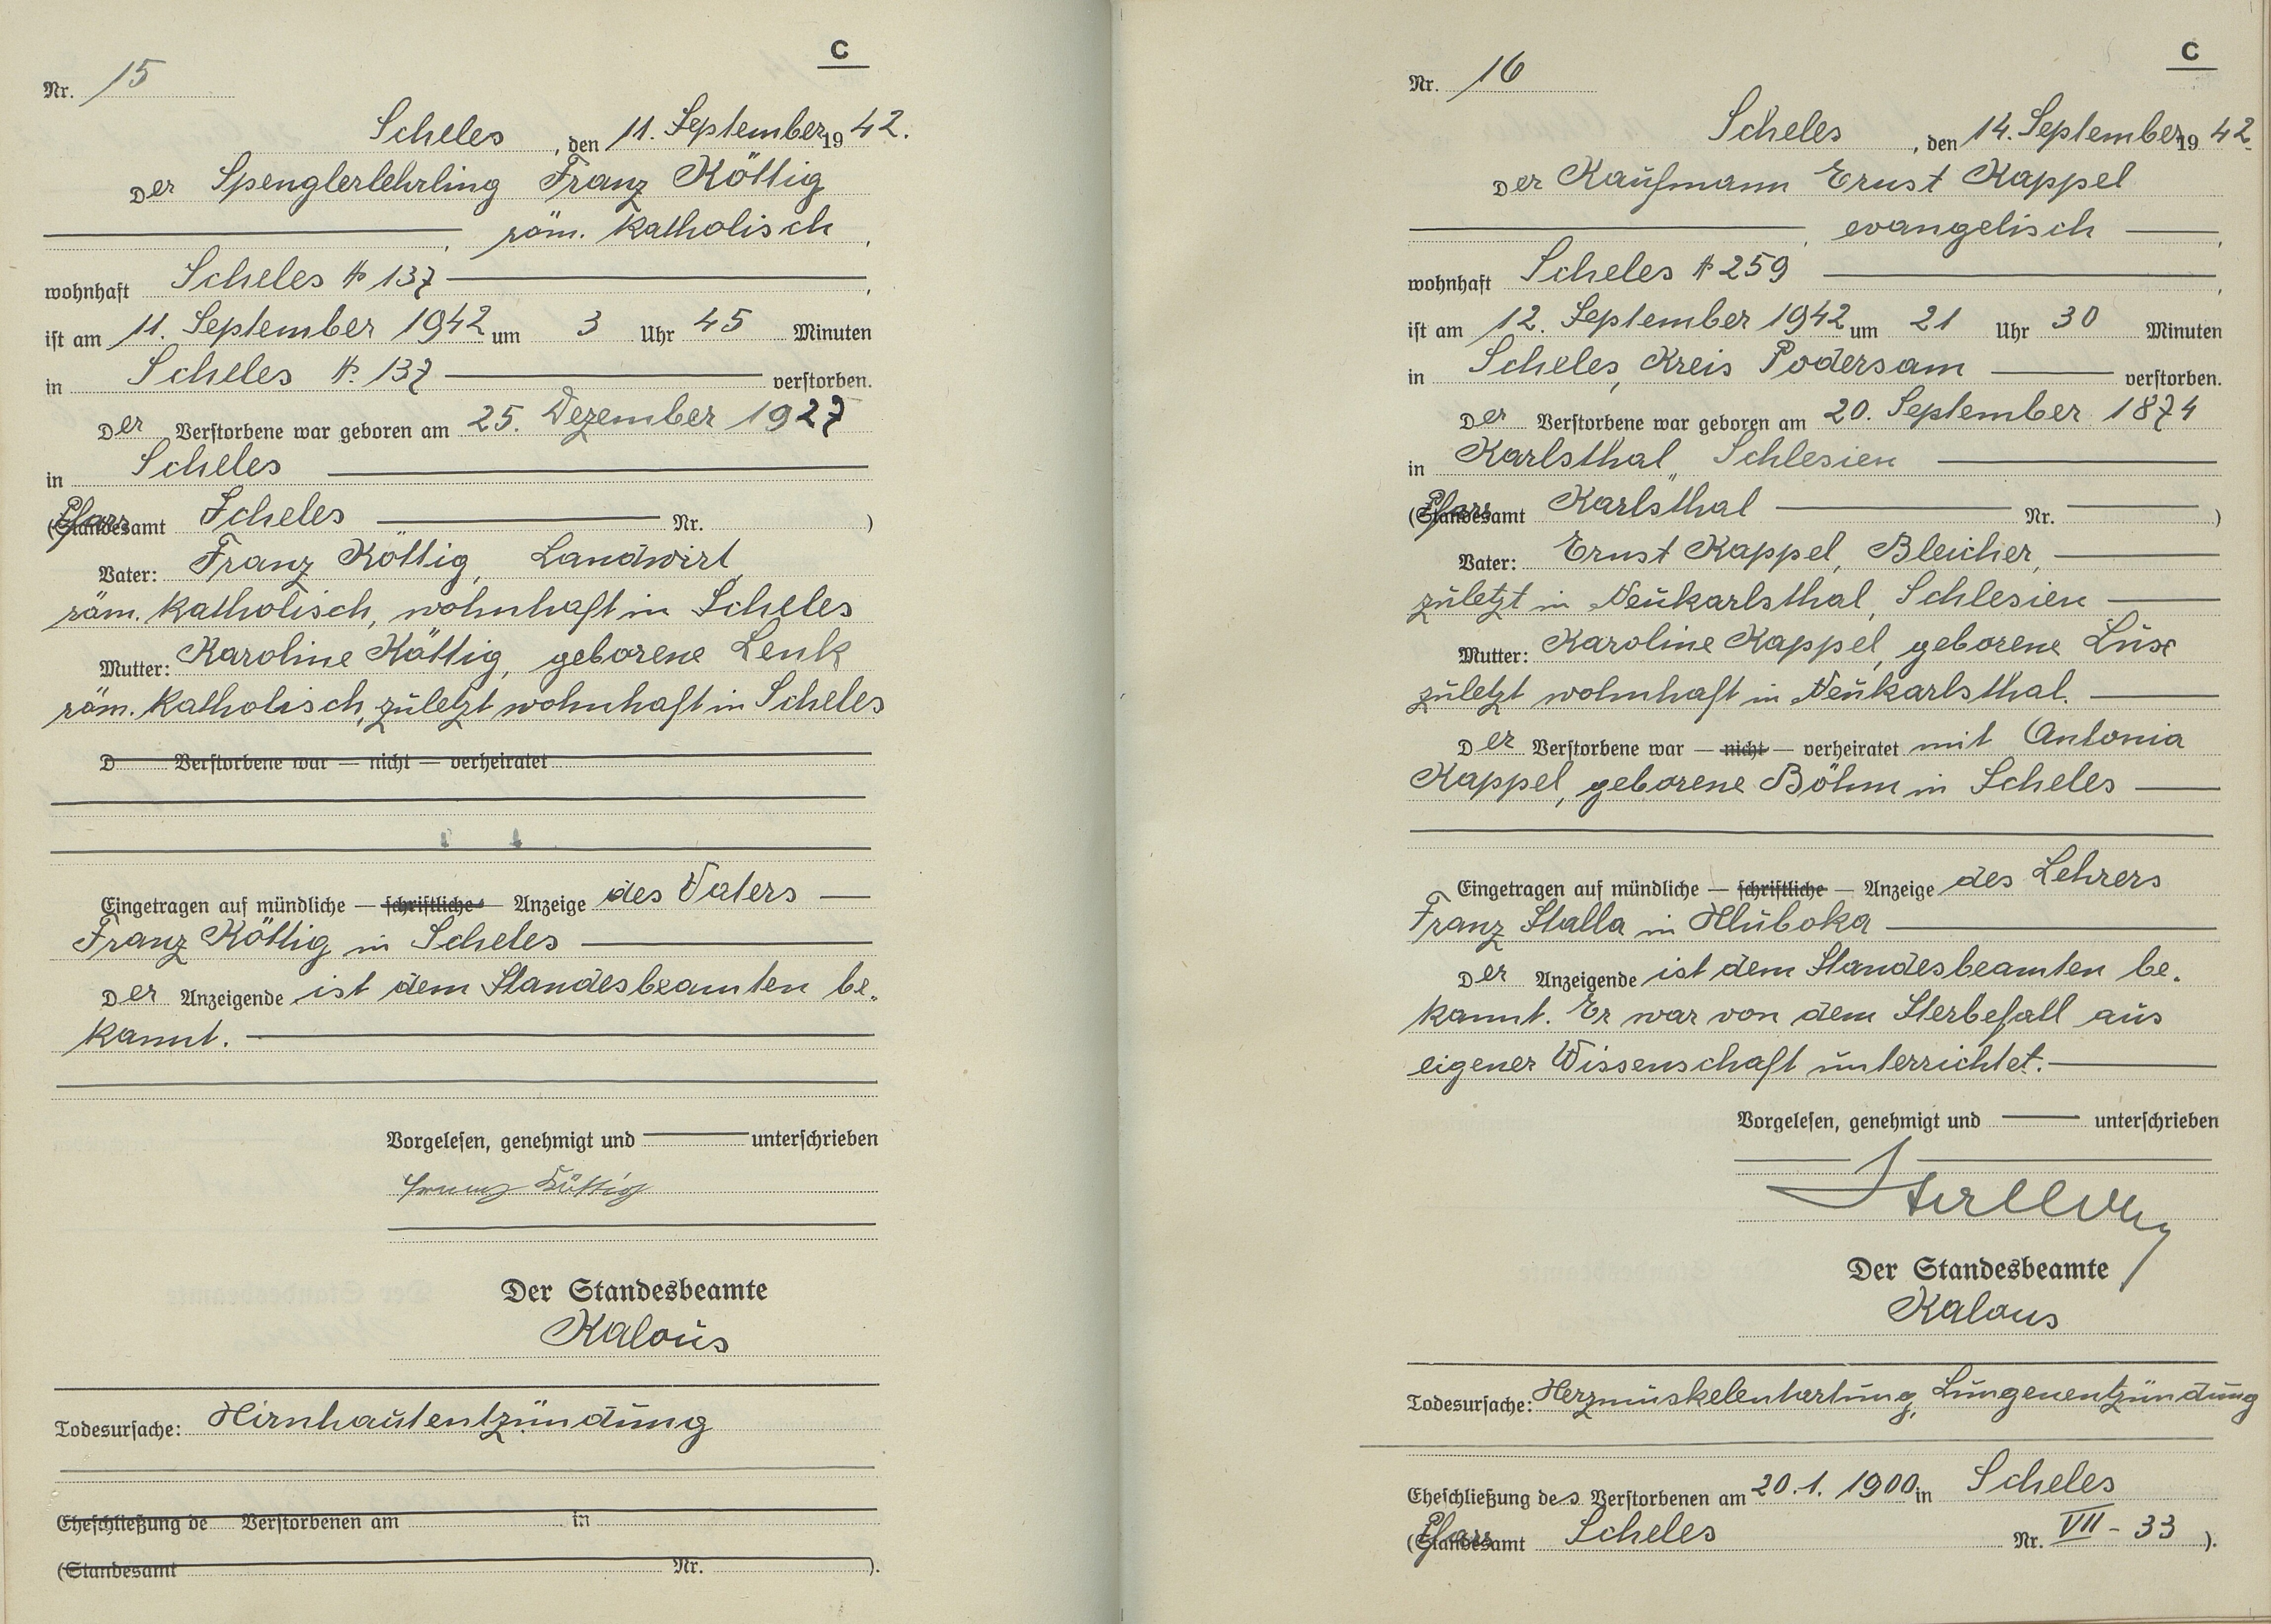 C
Nr. 15
Scheles, den 11. September 1942.
Der Spenglerlehrling Franz Köttig
, röm. katholisch,
wohnhaft Scheles № 137,
ist am 11. September 1942 um 3 Uhr 45 Minuten
in Scheles №. 137 verstorben.
Der Verstorbene war geboren am 25. Dezember 1927
in Scheles
(Pfarramt Scheles Nr. )
Vater: Franz Köttig, Landwirt,
röm. katholisch, wohnhaft in Scheles
Mutter: Karoline Köttig, geborene Lenk
röm. katholisch, zuletzt wohnhaft in Scheles
D Verstorbene war — nicht — verheiratet
Eingetragen auf mündliche — schriftliche — Anzeige des Vaters
Franz Köttig in Scheles
Der Anzeigende ist dem Standesbeamten be-
kannt.
Vorgelesen, genehmigt und unterschrieben
Franz Köttig
Der Standesbeamte
Kalous
Todesursache: Hirnhautentzündung
Eheschließung de Verstorbenen am in
(Standesamt Nr. ).
C
Nr. 16
Scheles, den 14. September 1942.
Der Kaufmann Ernst Kappel
, evangelisch,
wohnhaft Scheles № 259,
ist am 12. September 1942 um 21 Uhr 30 Minuten
in Scheles, Kreis Podersam verstorben.
Der Verstorbene war geboren am 20. September 1874
in Karlsthal, Schlesien
(Pfarramt Karlsthal Nr. )
Vater: Ernst Kappel, Bleicher,
zuletzt in Neukarlsthal, Schlesien
Mutter: Karoline Kappel, geborene Lux
zuletzt wohnhaft in Neukarlsthal.
Der Verstorbene war — nicht — verheiratet mit Antonia
Kappel, geborene Böhm in Scheles
Eingetragen auf mündliche — schriftliche — Anzeige des Lehrers
Franz Stalla in Hluboka
Der Anzeigende ist dem Standesbeamten be-
kannt. Er war von dem Sterbefall aus
eigener Wissenschaft unterrichtet.
Vorgelesen, genehmigt und unterschrieben
Der Standesbeamte
Kalous
Todesursache: Herzmuskelentartung, Lungenentzündung
Eheschließung des Verstorbenen am 20. 1. 1900 in Scheles
(Pfarramt Scheles Nr. VII - 33 ).